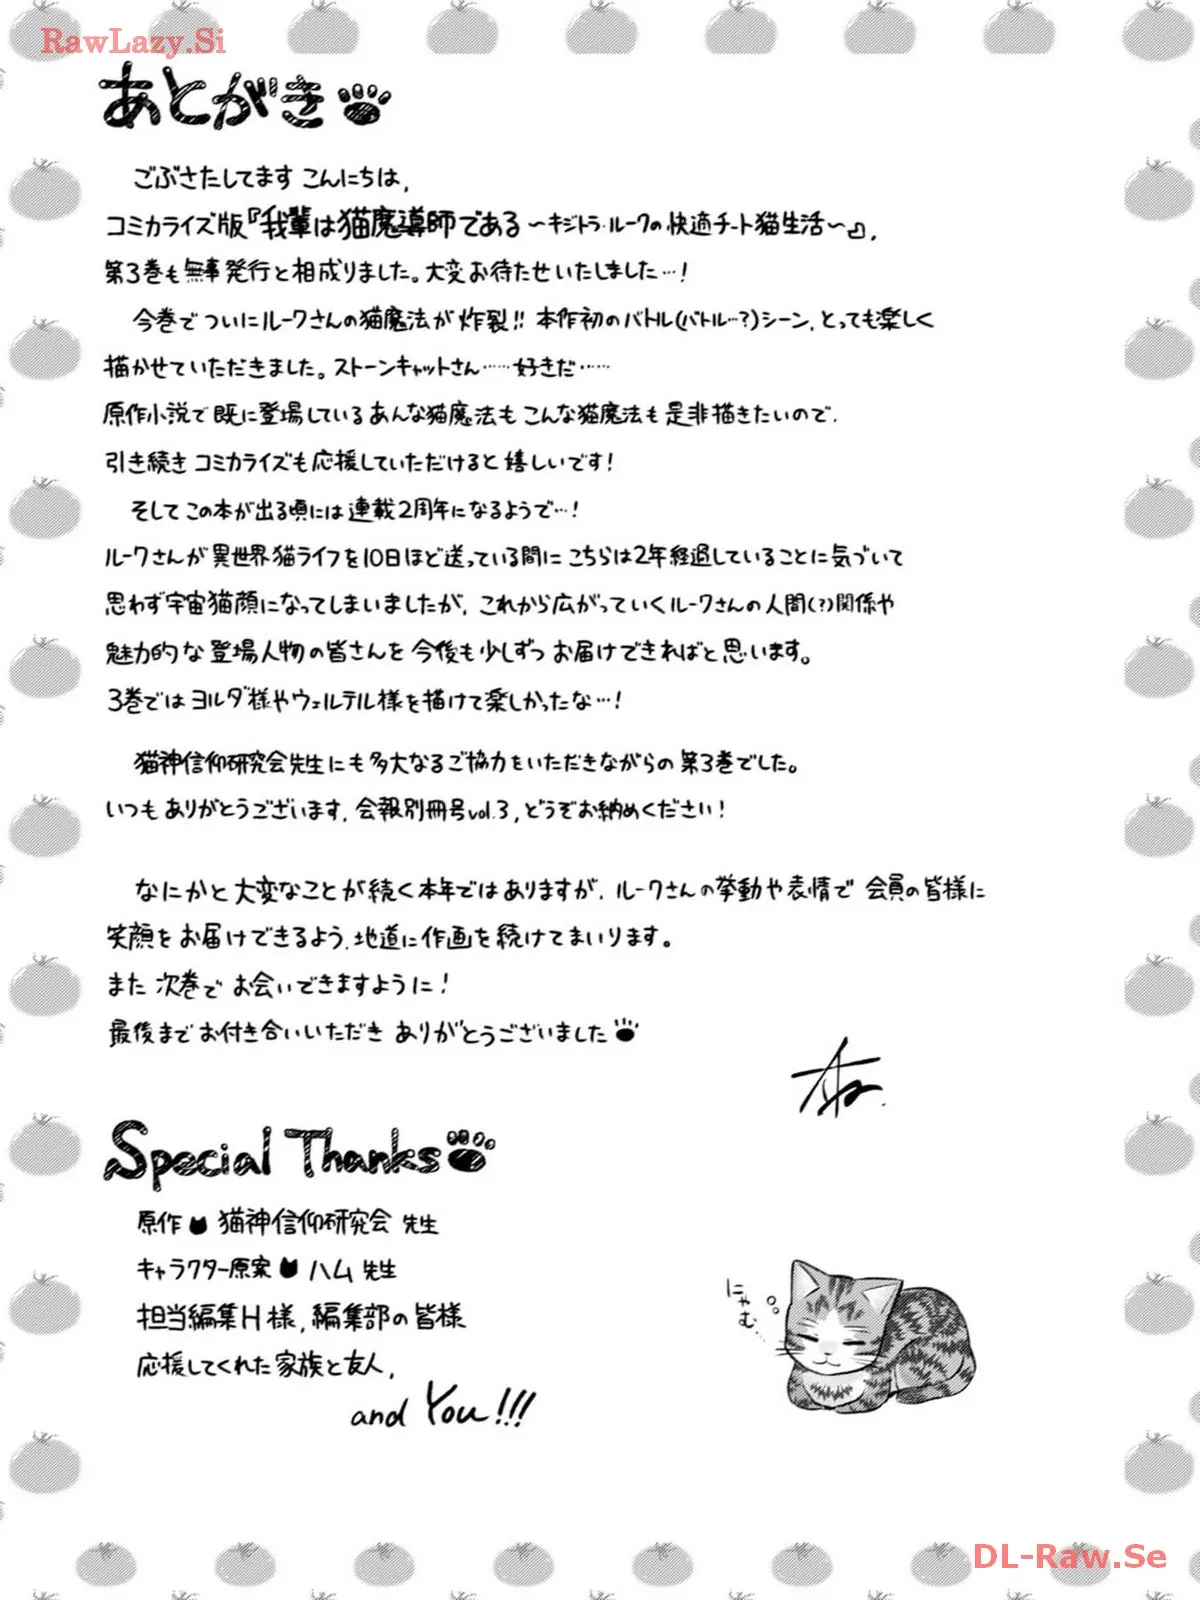 RawLazy.Si
あとがき
ごぶさたしてます こんにちは、
コミカライズ版『我輩は猫魔導師である 〜キジトラ・ルークの快適チート猫生活〜』、
第3巻も無事発行と相成りました。大変お待たせいたしました…!
今巻でついにルークさんの猫魔法が炸裂!! 本作初のバトル(バトル…?)シーン、とっても楽しく
描かせていただきました。ストーンキャットさん……好きだ……
原作小説で既に登場しているあんな猫魔法もこんな猫魔法も是非描きたいので、
引き続きコミカライズも応援していただけると嬉しいです!
そしてこの本が出る頃には連載2周年になるようで…!
ルークさんが異世界猫ライフを10日ほど送っている間にこちらは2年経過していることに気づいて
思わず宇宙猫顔になってしまいましたが、これから広がっていくルークさんの人間(?)関係や
魅力的な登場人物の皆さんを今後も少しずつお届けできればと思います。
3巻ではヨルダ様やウェルテル様を描けて楽しかったな…!
猫神信仰研究会先生にも多大なるご協力をいただきながらの第3巻でした。
いつもありがとうございます、会報別冊号vol.3、どうぞお納めください!
なにかと大変なことが続く本年ではありますが、ルークさんの挙動や表情で会員の皆様に
笑顔をお届けできるよう、地道に作画を続けてまいります。
また次巻でお会いできますように!
最後までお付き合いいただきありがとうございました
Special Thanks
原作 猫神信仰研究会 先生
キャラクター原案 ハム 先生
担当編集H様、編集部の皆様
応援してくれた家族と友人、
and You!!!
にゃむ…
DL-Raw.Se